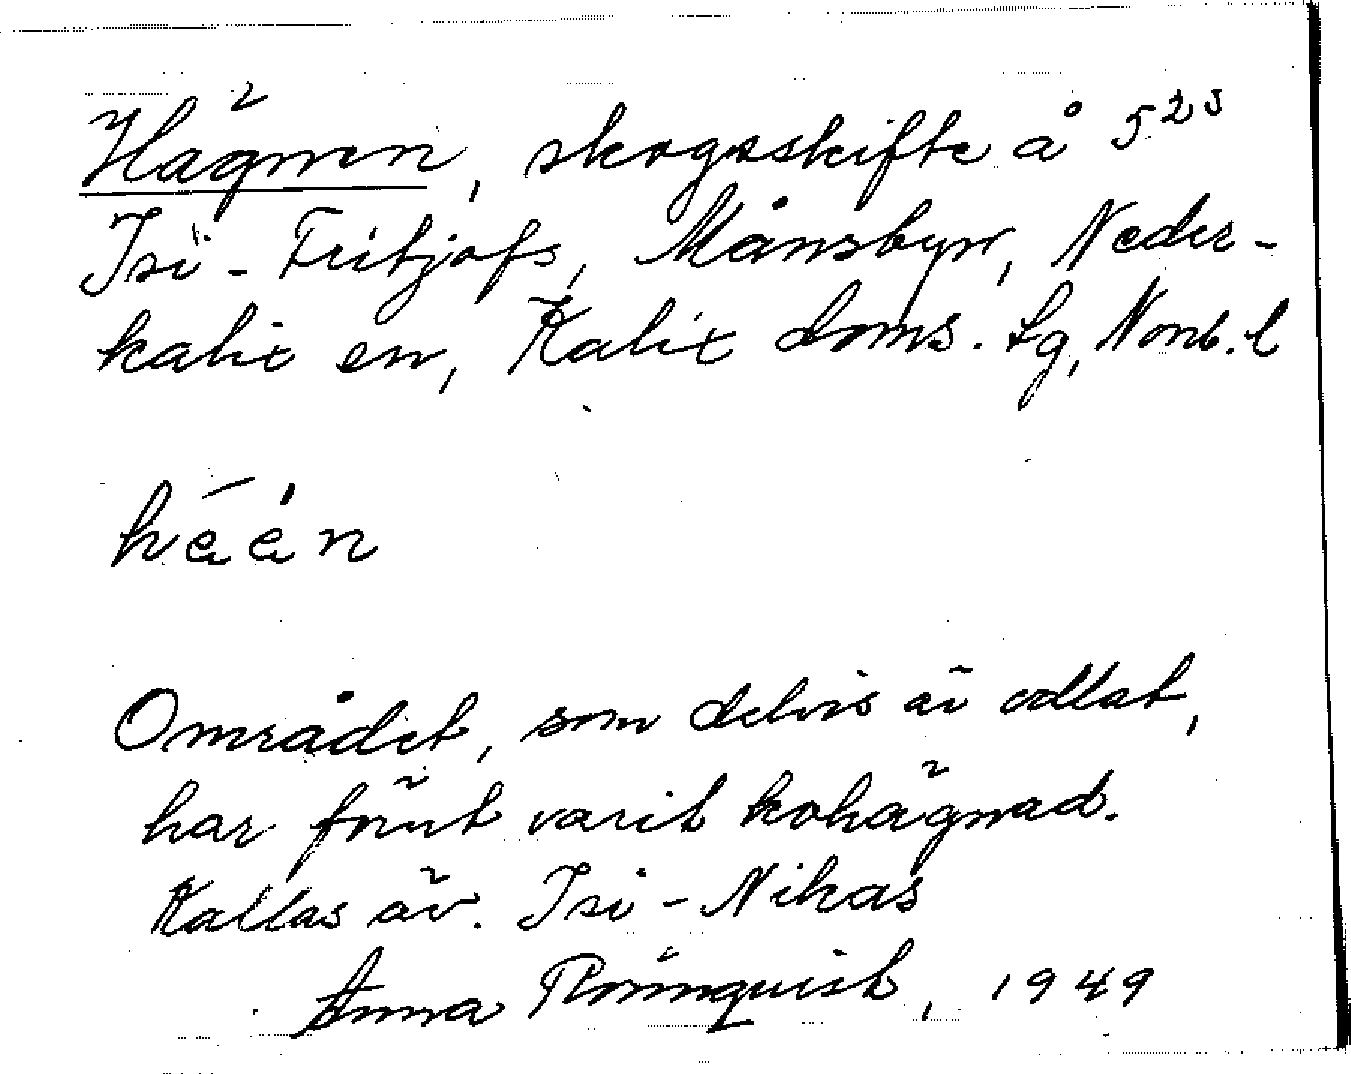 Hägnen, skogsskifte å 5²³
Isi-Fritjofs, Månsbyn, Neder-
kalix sn, Kalix doms. tg, Norrb. l
Området, som delvis är odlat,
har förut varit kohägnad.
Kallas äv. Isi-Nikas
Anna Rönnquist, 1949